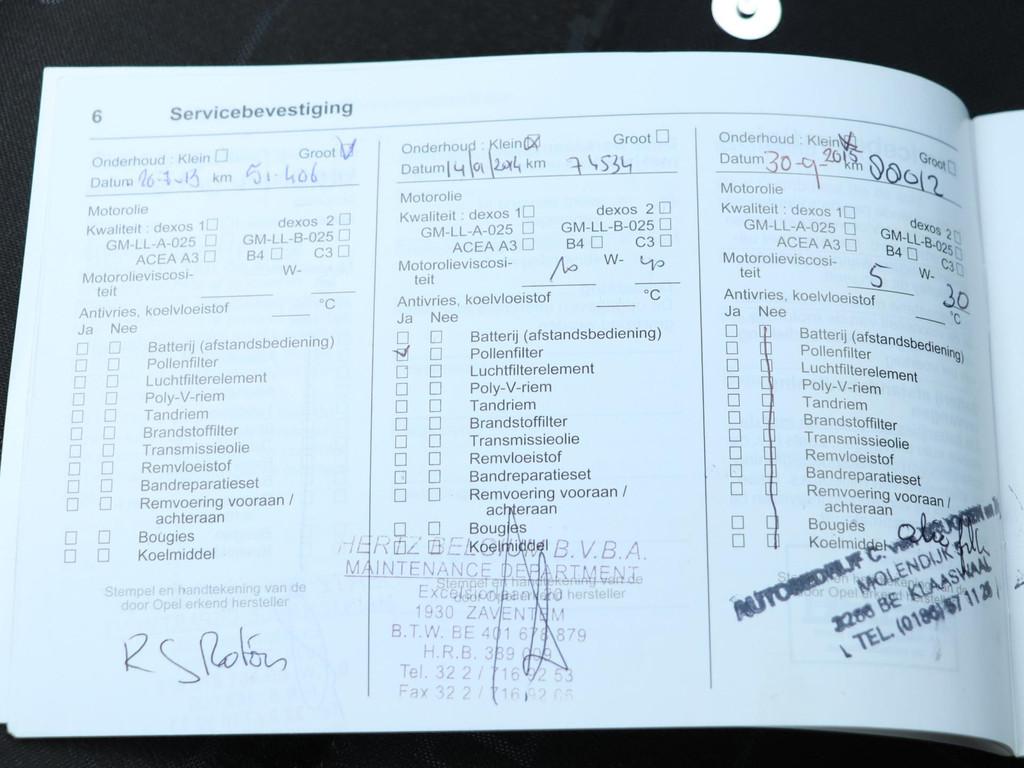 6 Servicebevestiging
Onderhoud : Klein Groot
Datum 26-7-13 km 51.406
Motorolie
Kwaliteit : dexos 1 dexos 2
GM-LL-A-025 GM-LL-B-025
ACEA A3 B4 C3
Motorolieviscosi- W-
teit
Antivries, koelvloeistof °C
Ja Nee
Batterij (afstandsbediening)
Pollenfilter
Luchtfilterelement
Poly-V-riem
Tandriem
Brandstoffilter
Transmissieolie
Remvloeistof
Bandreparatieset
Remvoering vooraan /
achteraan
Bougies
Koelmiddel
Stempel en handtekening van de
door Opel erkend hersteller
Onderhoud : Klein Groot
Datum 14/01/2014 km 74534
Motorolie
Kwaliteit : dexos 1 dexos 2
GM-LL-A-025 GM-LL-B-025
ACEA A3 B4 C3
Motorolieviscosi- 10 W- 40
teit
Antivries, koelvloeistof °C
Ja Nee
Batterij (afstandsbediening)
Pollenfilter
Luchtfilterelement
Poly-V-riem
Tandriem
Brandstoffilter
Transmissieolie
Remvloeistof
Bandreparatieset
Remvoering vooraan /
achteraan
Bougies
Koelmiddel
Stempel en handtekening van de
door Opel erkend hersteller
HERTZ BELGIUM B.V.B.A.
MAINTENANCE DEPARTMENT
Excelsiorlaan 20
1930 ZAVENTEM
B.T.W. BE 401 678 879
H.R.B. 389 009
Tel. 32 2 / 716 92 53
Fax 32 2 / 716 92 06
Onderhoud : Klein Groot
Datum 30-9 2015 km 90012
Motorolie
Kwaliteit : dexos 1 dexos 2
GM-LL-A-025 GM-LL-B-025
ACEA A3 B4 C3
Motorolieviscosi- W-
teit 5 30
Antivries, koelvloeistof °C
Ja Nee
Batterij (afstandsbediening)
Pollenfilter
Luchtfilterelement
Poly-V-riem
Tandriem
Brandstoffilter
Transmissieolie
Remvloeistof
Bandreparatieset
Remvoering vooraan /
achteraan
Bougies
Koelmiddel
door Opel
AUTOBEDRIJF C.
MOLENDIJK
3286 BE KLAASWAAL
TEL. (0186) 57 11 28